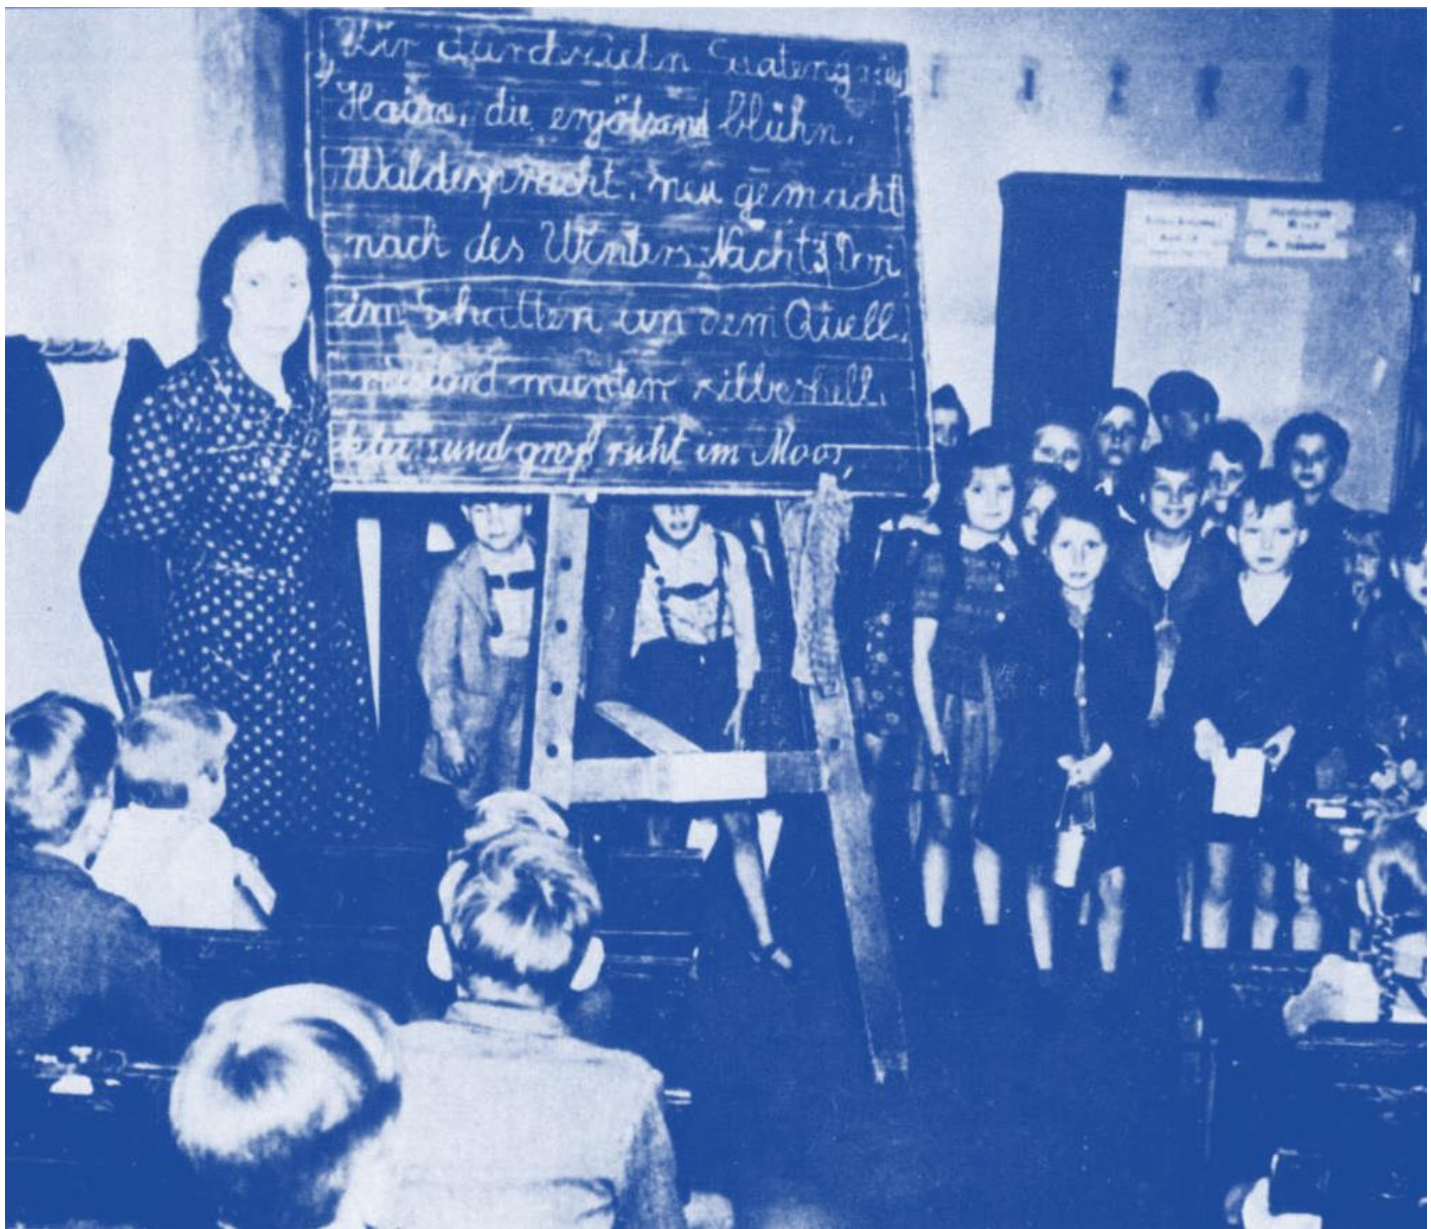 Wir durchziehn Saatengrün,
Haine, die ergötzend blühn.
Waldespracht, neu gemacht
nach des Winters Nacht. Dort
im Schatten an dem Quell,
rieselnd munter silberhell.
klein und groß ruht im Moos,